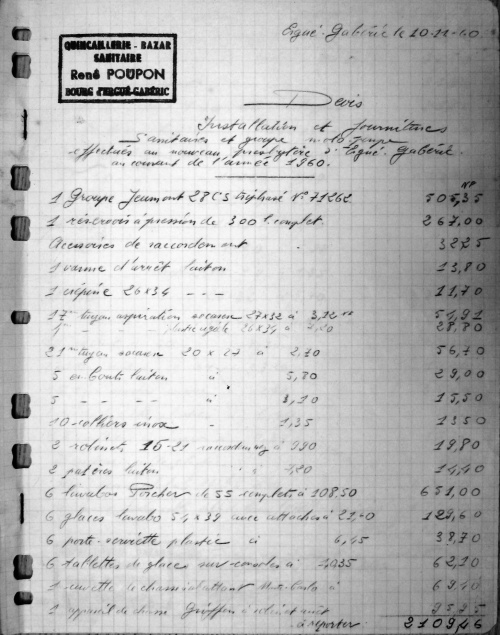 QUINCAILLERIE - BAZAR
SANITAIRE
René POUPON
BOURG D'ERGUÉ-GABÉRIC
Ergué-Gabéric le 20-11-60
Devis
Installation et fournitures
Sanitaires et groupe moto pompe
effectués au nouveau presbytère d'Ergué-Gabéric
au courant de l'année 1960.
NF
1 Groupe Jeumont 28CS triphasé N° 71262 505,35
1 réservoir à pression de 300 l. complet 267,00
Accessoires de raccordement 32,25
1 vanne d'arrêt laiton 13,80
1 crépine 26x34 - - - 11,70
17 m tuyau aspiration socarex 27x32 à 3,12 51,91
26x34 à 28,80
21 m tuyau socarex 20 x 27 à 2,70 56,70
5 embouts laiton à 5,80 29,00
5 - - - à 3,10 15,50
10 colliers inox - 1,35 13,50
2 robinets 15-21 à 9,90 19,80
2 patères laiton à 7,20 14,40
6 lavabos Porcher de 55 complets à 108,50 651,00
6 glaces lavabo 54x39 avec attaches à 21,60 129,60
6 porte-serviette plastec à 6,45 38,70
6 tablettes de glace sur consoles à 62,10
1 cuvette de chasse abattant à 69,40
1 appareil de chasse Griffon 95,95
à reporter 2109,46